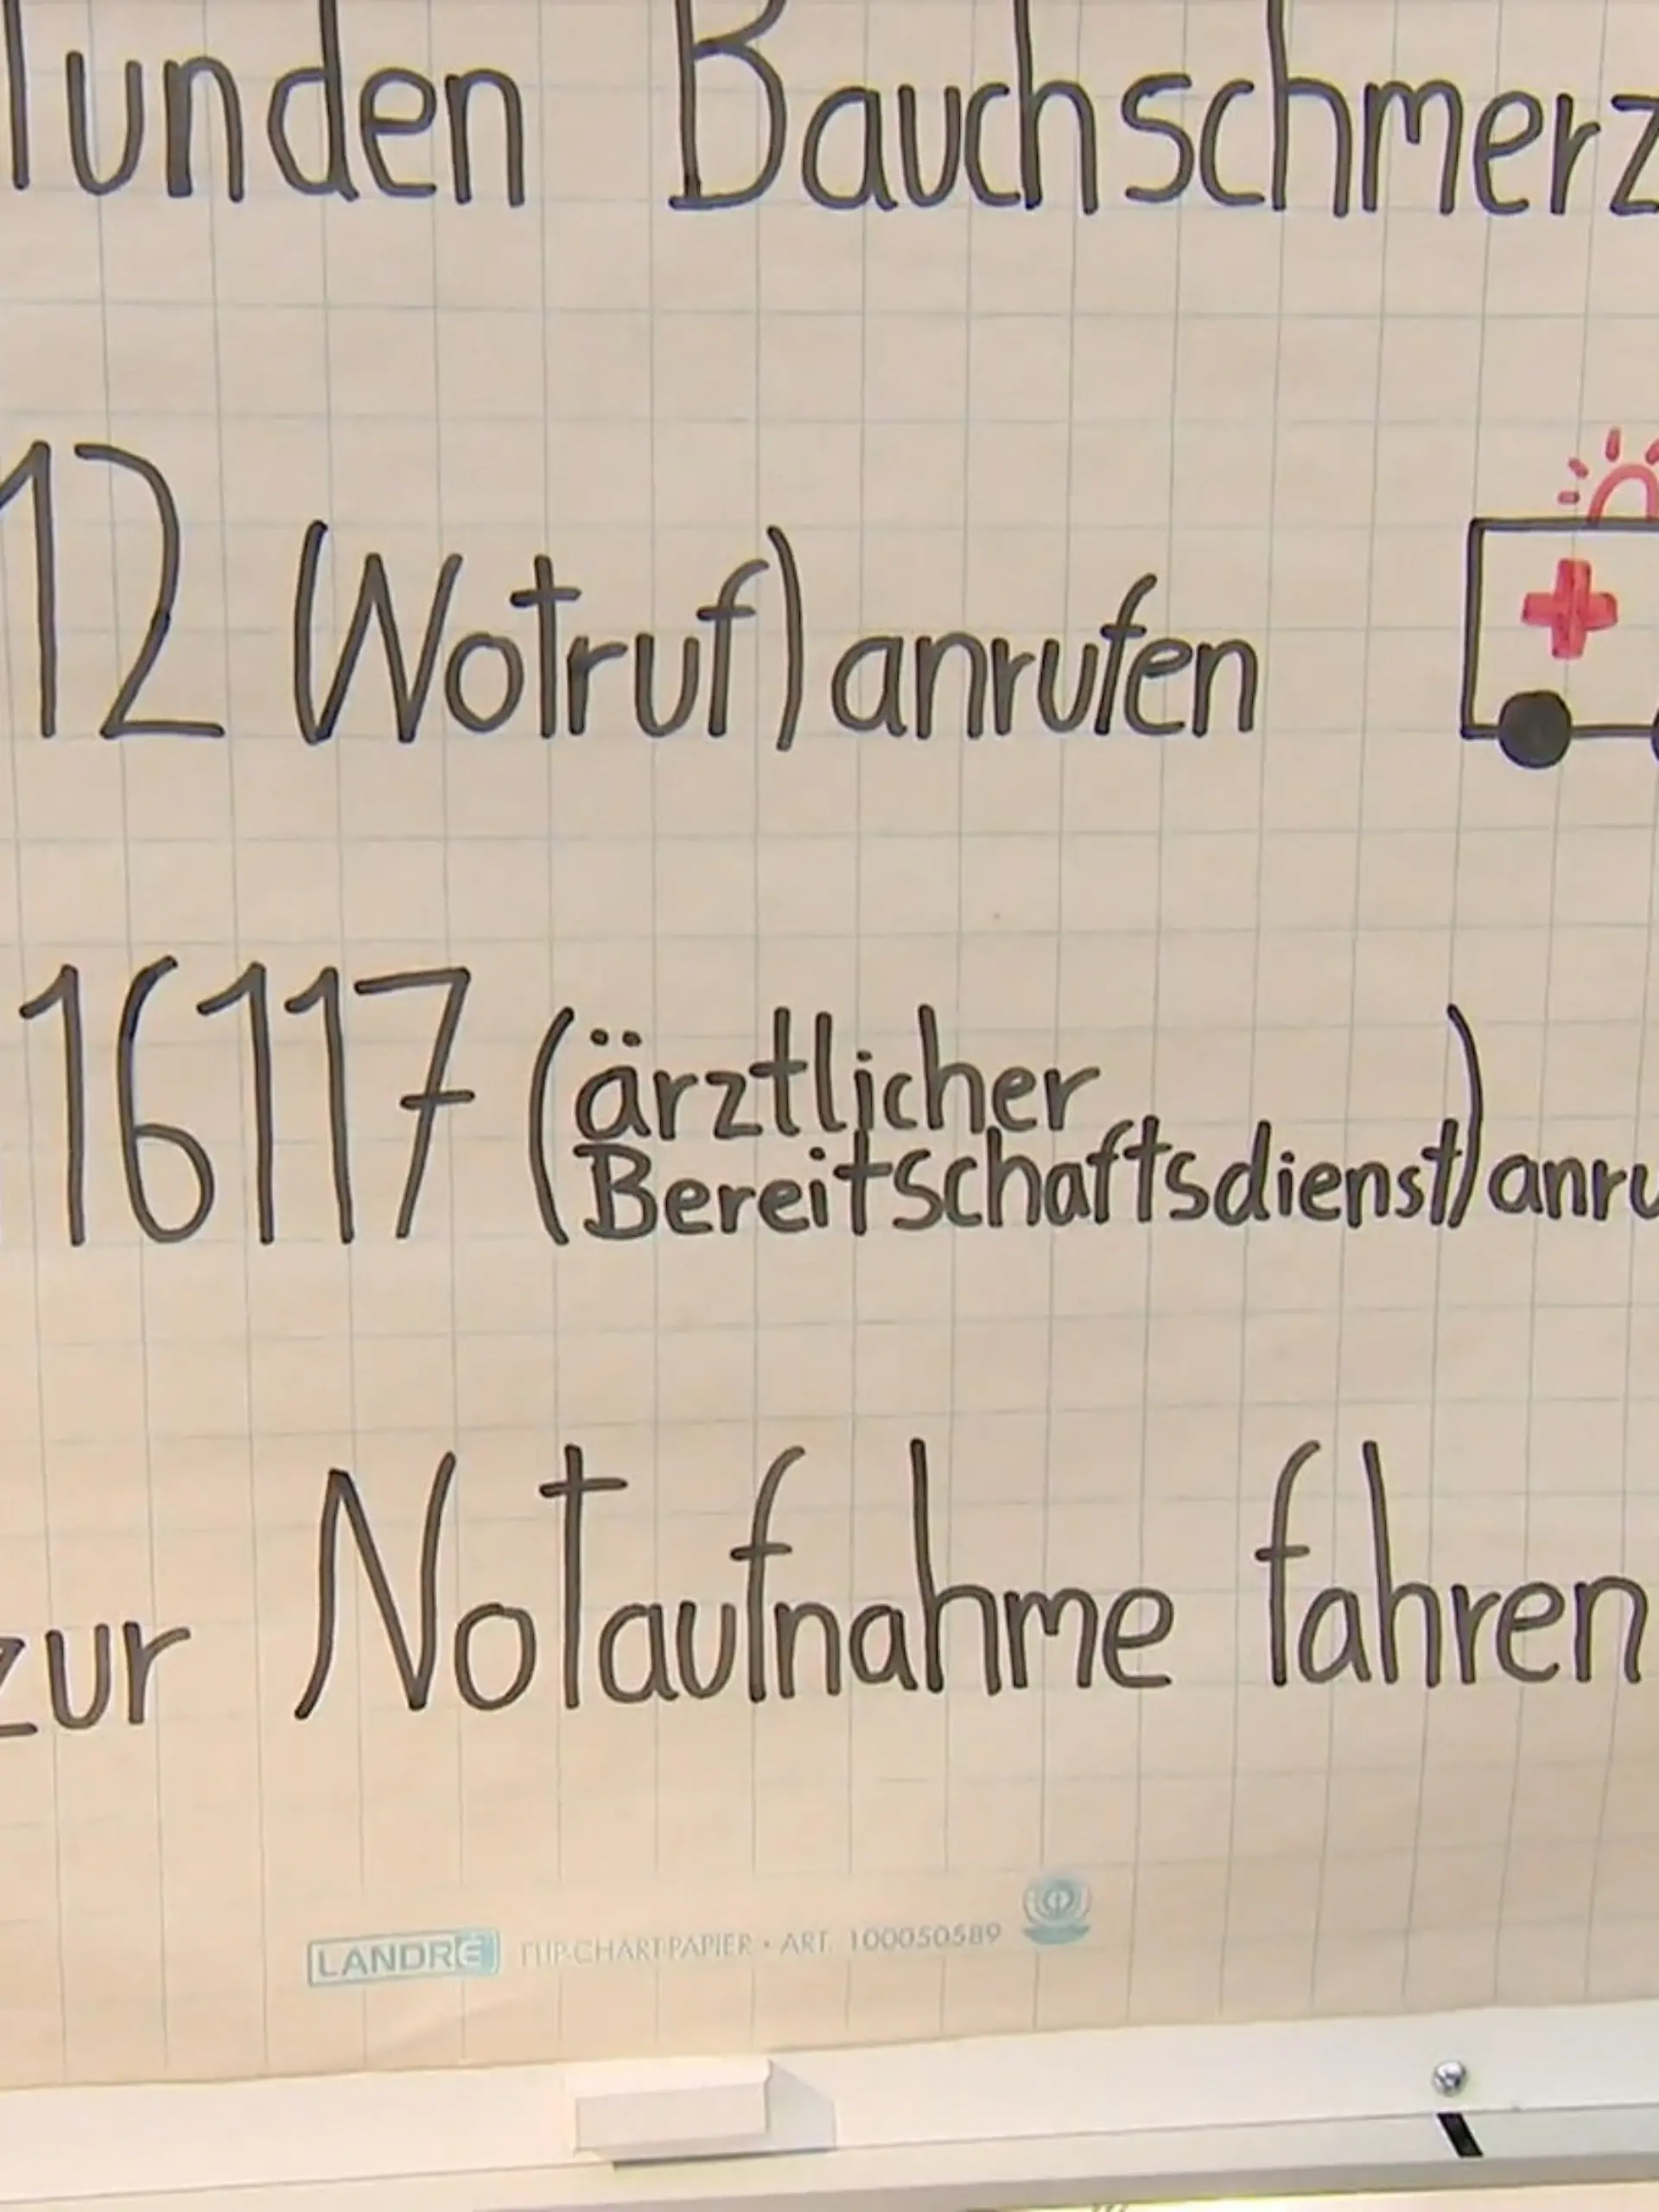 tunden Bauchschmerz
12 (Notruf) anrufen
16117 (ärztlicher
Bereitschaftsdienst) anru
zur Notaufnahme fahren
LANDRÉ FLIP-CHART-PAPIER • ART. 100050589